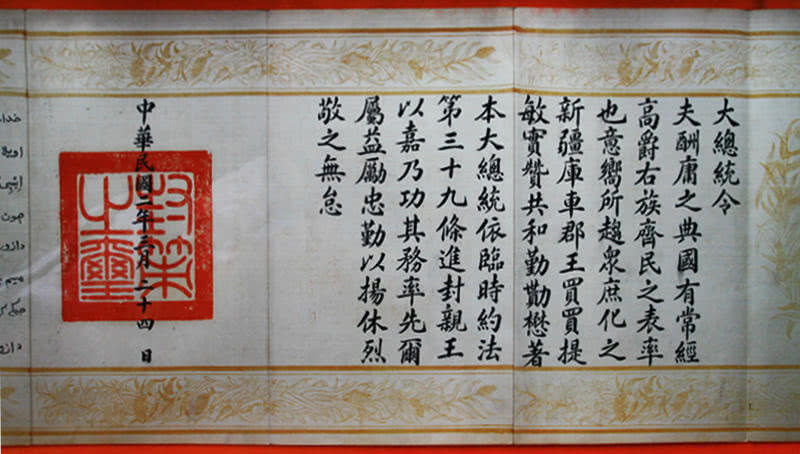 大總統令
夫酬庸之典國有常經
高爵右族齊民之表率
也意嚮所趨衆庶化之
新疆庫車郡王買買提
敏實贊共和勤勩懋著
本大總統依臨時約法
第三十九條進封親王
以嘉乃功其務率先爾
屬益勵忠勤以揚休烈
敬之無怠
中華民國二年三月二十四日
封策之璽